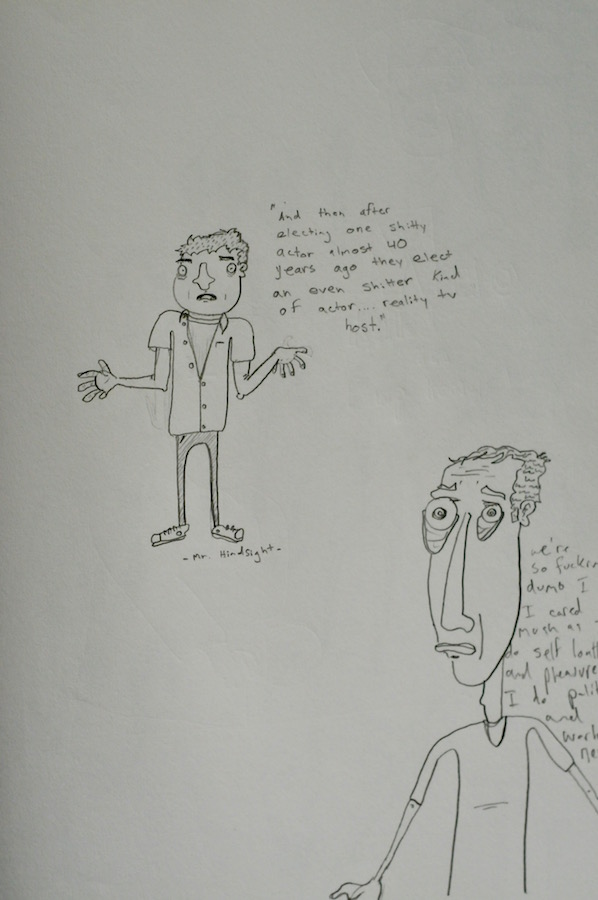 "And then after
electing one shitty
actor almost 40
years ago they elect
an even shitter kind
of actor.... reality tv
host."
-Mr. Hindsight-
we're
so fuckin
dumb I
I cared
much as
do self loat
and pleasure
I do polit
and
work
ne